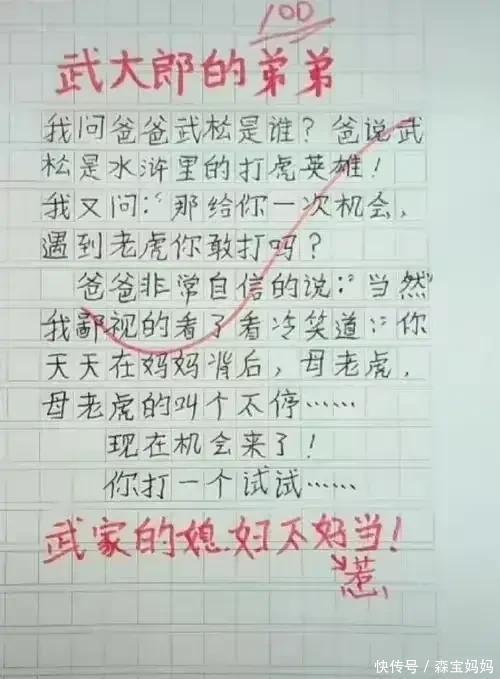 100
武大郎的弟弟
我问爸爸武松是谁？爸说武
松是水浒里的打虎英雄！
我又问:“那给你一次机会，
遇到老虎你敢打吗？
爸爸非常自信的说:“当然”
我鄙视的看了看冷笑道:“你
天天在妈妈背后，母老虎，
母老虎的叫个不停……
现在机会来了！
你打一个试试……
武家的媳妇不好当！
惹
快传号／森宝妈妈